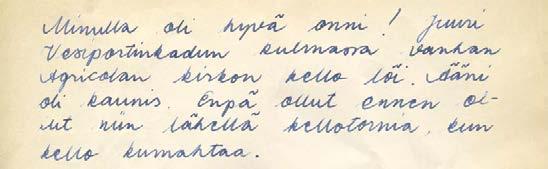 Minulla oli hyvä onni! Juuri
Vesiportinkadun kulmassa vanhan
Agricolan kirkon kello löi. Ääni
oli kaunis. Enpä ollut ennen ol-
lut niin lähellä kellotornia, kun
kello kumahtaa.